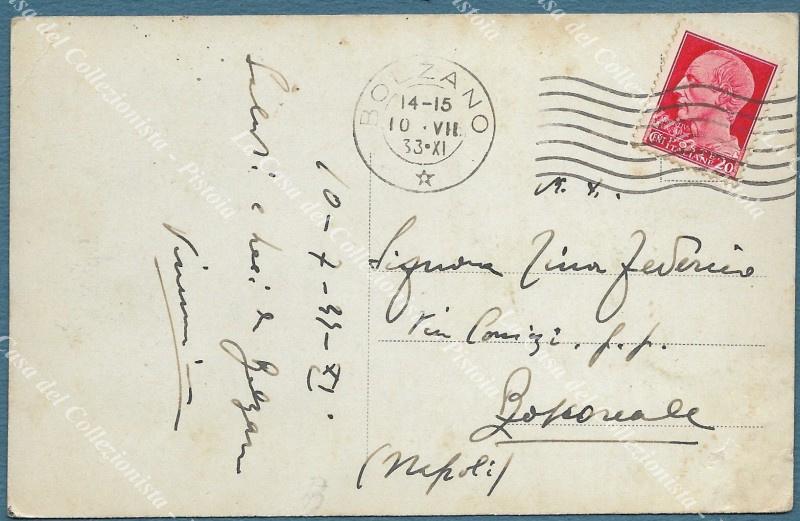 BOLZANO
14-15
10 · VII
33·XI
POSTE ITALIANE 20
10-7-33-XI.
Saluti e baci da Bolzano
N. H.
Signora Tina Federico
Via
Boscoreale
(Napoli)
La Casa del Collezionista - Pistoia